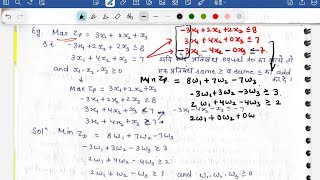 Eg Max Zp = 3x₁ + 2x₂ + x₃
s.t. -3x₁ + 2x₂ + 2x₃ ≤ 8
3x₁ + 4x₂ + x₃ = 7
and x₁, x₂, x₃ ≥ 0
Max Zp = 3x₁ + 2x₂ + x₃
-3x₁ + 2x₂ + 2x₃ ≤ 8
3x₁ + 4x₂ + x₃ ≤ 7
3x₁ + 4x₂ + x₃ ≥ 7
Solⁿ Min ZD = 8w₁ + 7w₂ - 7w₃
-3w₁ + 3w₂ - 3w₃ ≥ 3
2w₁ + 4w₂ - 4w₃ ≥ 2
2w₁ + w₂ - w₃ ≥ 1 and w₁, w₂, w₃ ≥ 0
-3x₁ + 2x₂ + 2x₃ ≤ 8
3x₁ + 4x₂ + 0x₃ ≤ 7
-3x₁ - 4x₂ - 0x₃ ≤ -7
यदि कोई equal to
same ≥ व same ≤ add
Min ZD = 8w₁ + 7w₂ - 7w₃
-3w₁ + 3w₂ - 3w₃ ≥ 3
2w₁ + 4w₂ - 4w₃ ≥ 2
2w₁ + 0w₂ + 0w
-3x₁ - 4x₂ - x₃ ≤ -7